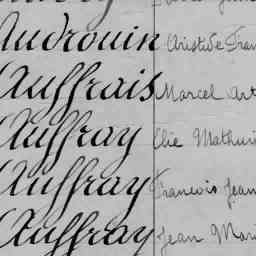 Audrouin Aristide Fran
Auffrais Marcel Art
Auffray Elie Mathuri
Auffray Francois Jean
Auffray Jean Mari